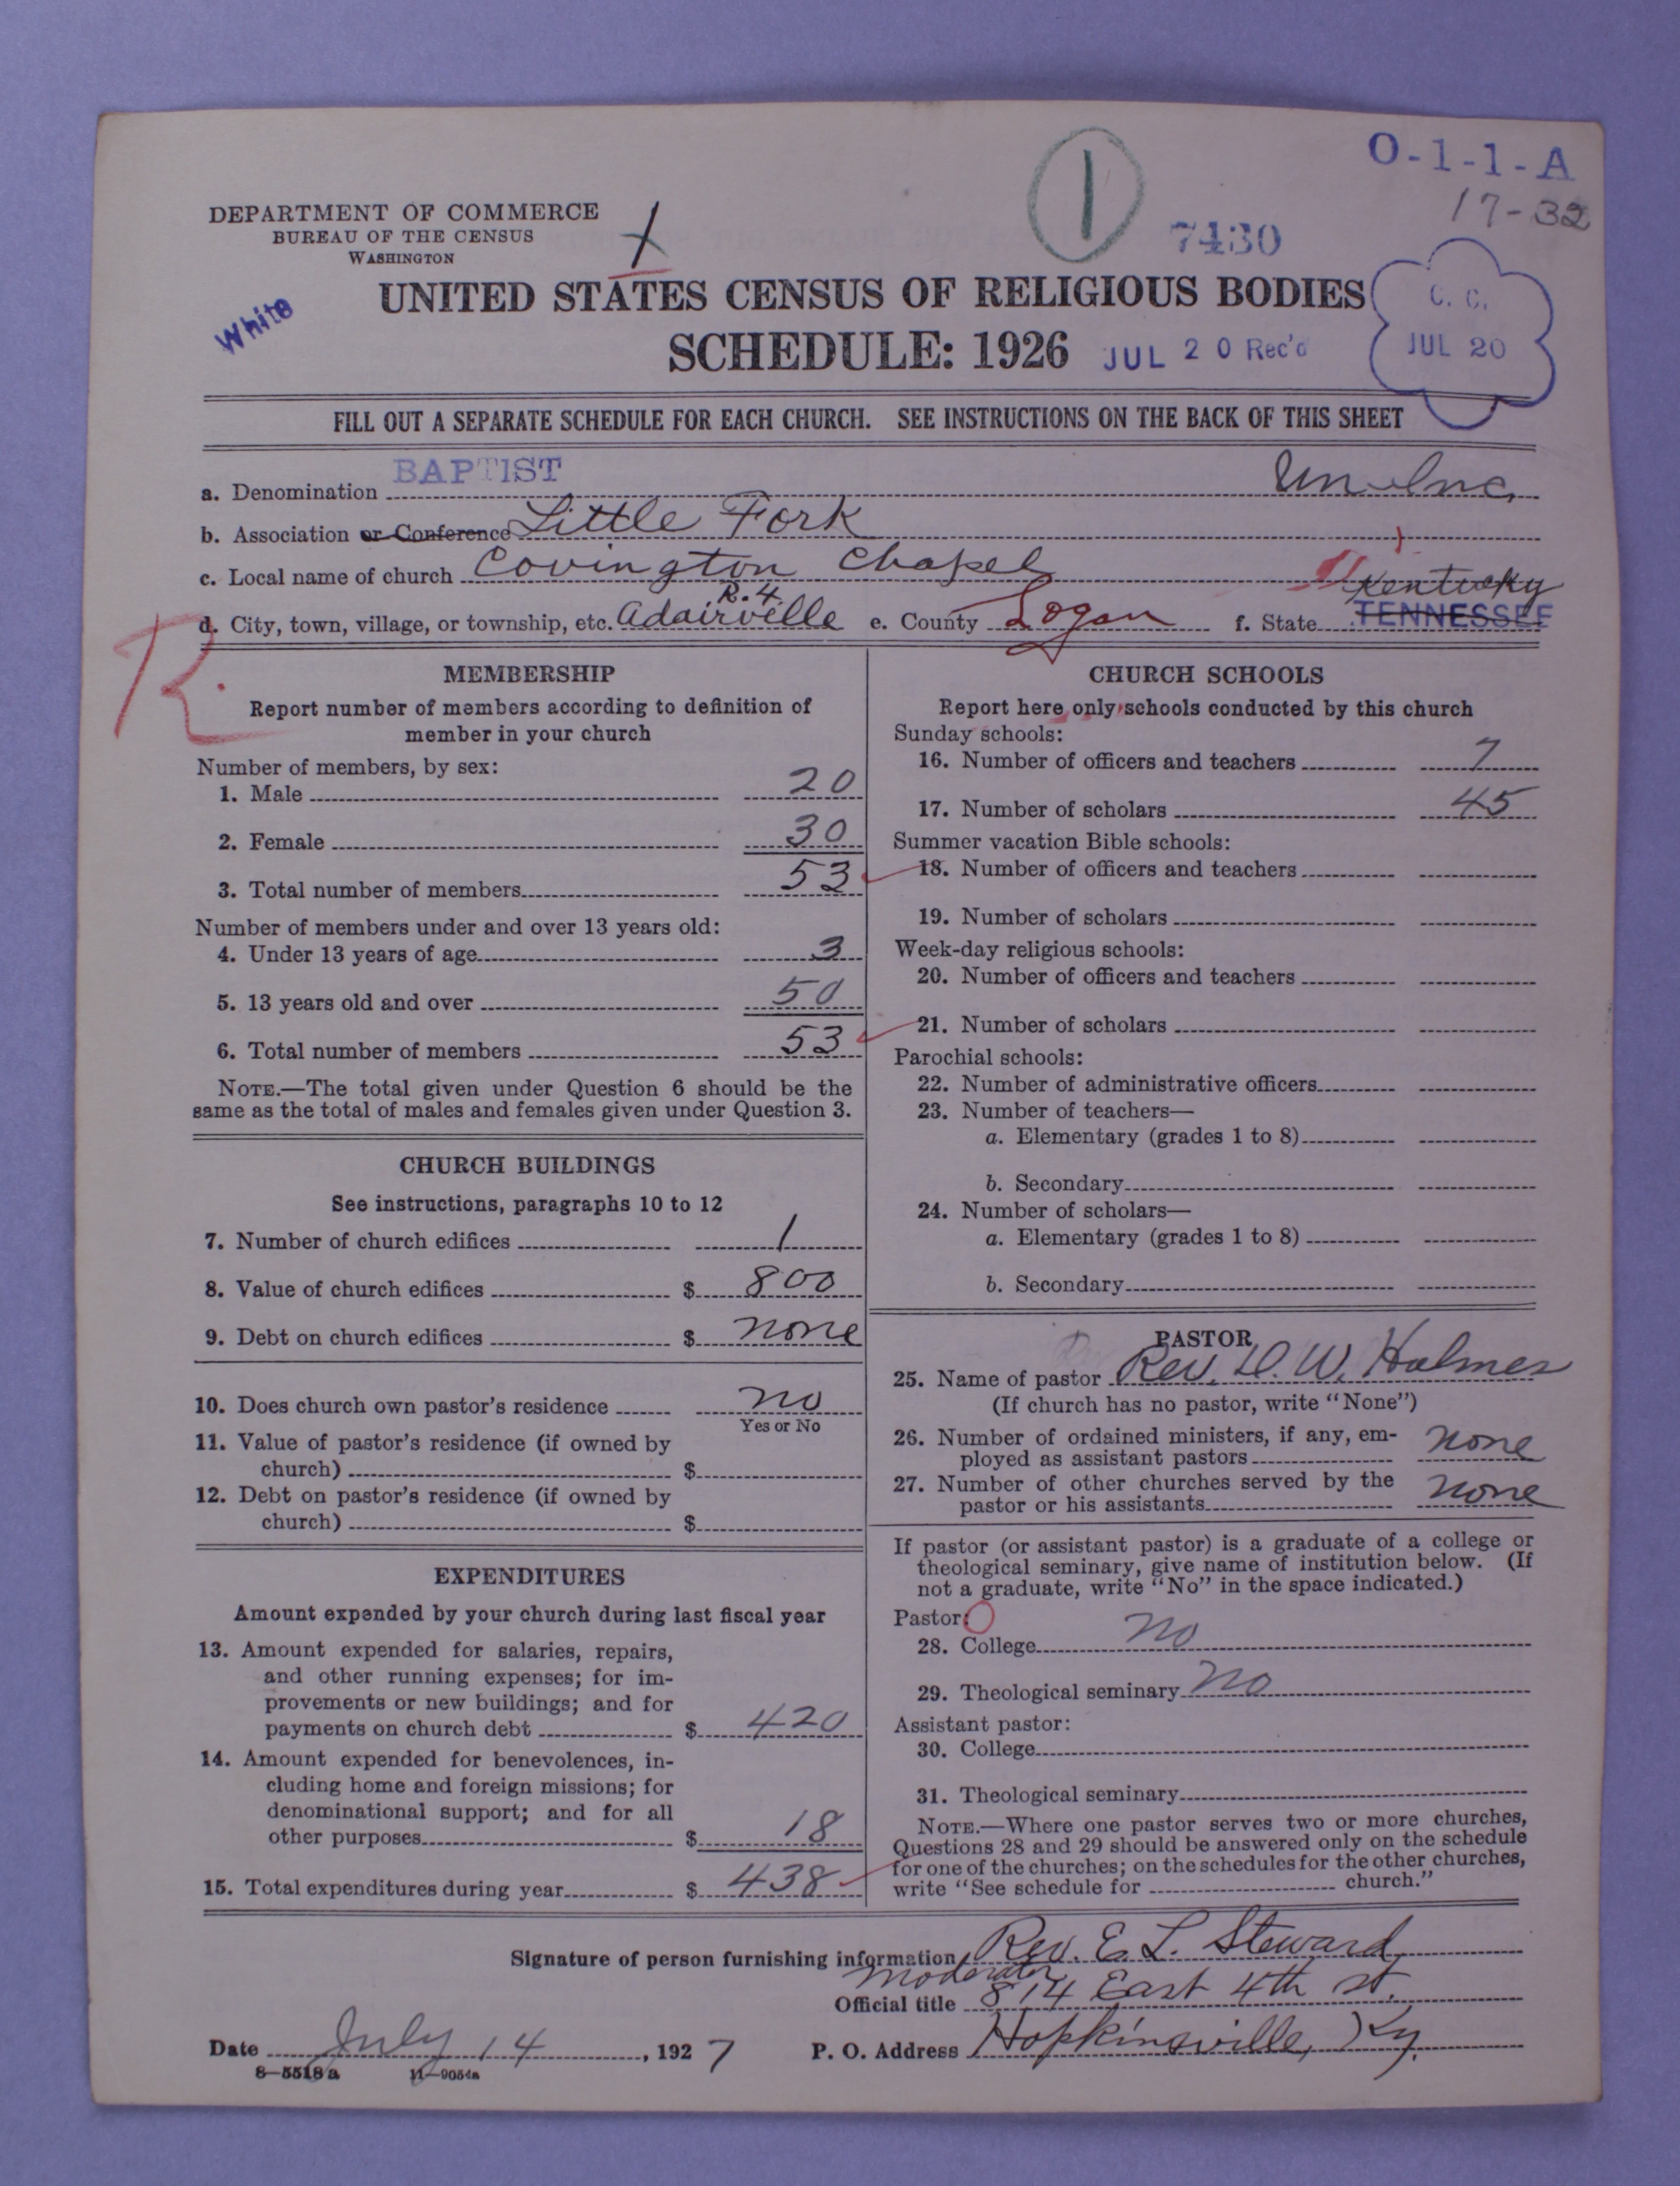 O-1-1-A
17-32
DEPARTMENT OF COMMERCE
BUREAU OF THE CENSUS
WASHINGTON
1
7430
White
UNITED STATES CENSUS OF RELIGIOUS BODIES
SCHEDULE: 1926
JUL 20 Rec'd
C. C.
JUL 20
FILL OUT A SEPARATE SCHEDULE FOR EACH CHURCH. SEE INSTRUCTIONS ON THE BACK OF THIS SHEET
a. Denomination BAPTIST Un-Inc.
b. Association or Conference Little Fork
c. Local name of church Covington Chapel
R. 4. Kentucky
d. City, town, village, or township, etc. Adairville e. County Logan f. State TENNESSEE
R.
MEMBERSHIP
Report number of members according to definition of
member in your church
Number of members, by sex:
1. Male 20
2. Female 30
3. Total number of members 53
Number of members under and over 13 years old:
4. Under 13 years of age 3
5. 13 years old and over 50
6. Total number of members 53
NOTE.—The total given under Question 6 should be the
same as the total of males and females given under Question 3.
CHURCH BUILDINGS
See instructions, paragraphs 10 to 12
7. Number of church edifices 1
8. Value of church edifices $ 800
9. Debt on church edifices $ none
10. Does church own pastor's residence no
Yes or No
11. Value of pastor's residence (if owned by
church) $
12. Debt on pastor's residence (if owned by
church) $
EXPENDITURES
Amount expended by your church during last fiscal year
13. Amount expended for salaries, repairs,
and other running expenses; for im-
provements or new buildings; and for
payments on church debt $ 420
14. Amount expended for benevolences, in-
cluding home and foreign missions; for
denominational support; and for all
other purposes $ 18
15. Total expenditures during year $ 438
CHURCH SCHOOLS
Report here only schools conducted by this church
Sunday schools:
16. Number of officers and teachers 7
17. Number of scholars 45
Summer vacation Bible schools:
18. Number of officers and teachers
19. Number of scholars
Week-day religious schools:
20. Number of officers and teachers
21. Number of scholars
Parochial schools:
22. Number of administrative officers
23. Number of teachers—
a. Elementary (grades 1 to 8)
b. Secondary
24. Number of scholars—
a. Elementary (grades 1 to 8)
b. Secondary
PASTOR
25. Name of pastor Rev. D. W. Holmes
(If church has no pastor, write "None")
26. Number of ordained ministers, if any, em-
ployed as assistant pastors none
27. Number of other churches served by the
pastor or his assistants none
If pastor (or assistant pastor) is a graduate of a college or
theological seminary, give name of institution below. (If
not a graduate, write "No" in the space indicated.)
Pastor:
28. College no
29. Theological seminary no
Assistant pastor:
30. College
31. Theological seminary
NOTE.—Where one pastor serves two or more churches,
Questions 28 and 29 should be answered only on the schedule
for one of the churches; on the schedules for the other churches,
write "See schedule for church."
Signature of person furnishing information Rev. E. L. Steward
moderator
Official title 814 East 4th st.
Date July 14, 1927 P. O. Address Hopkinsville, Ky.
8—5518a 11—9054a